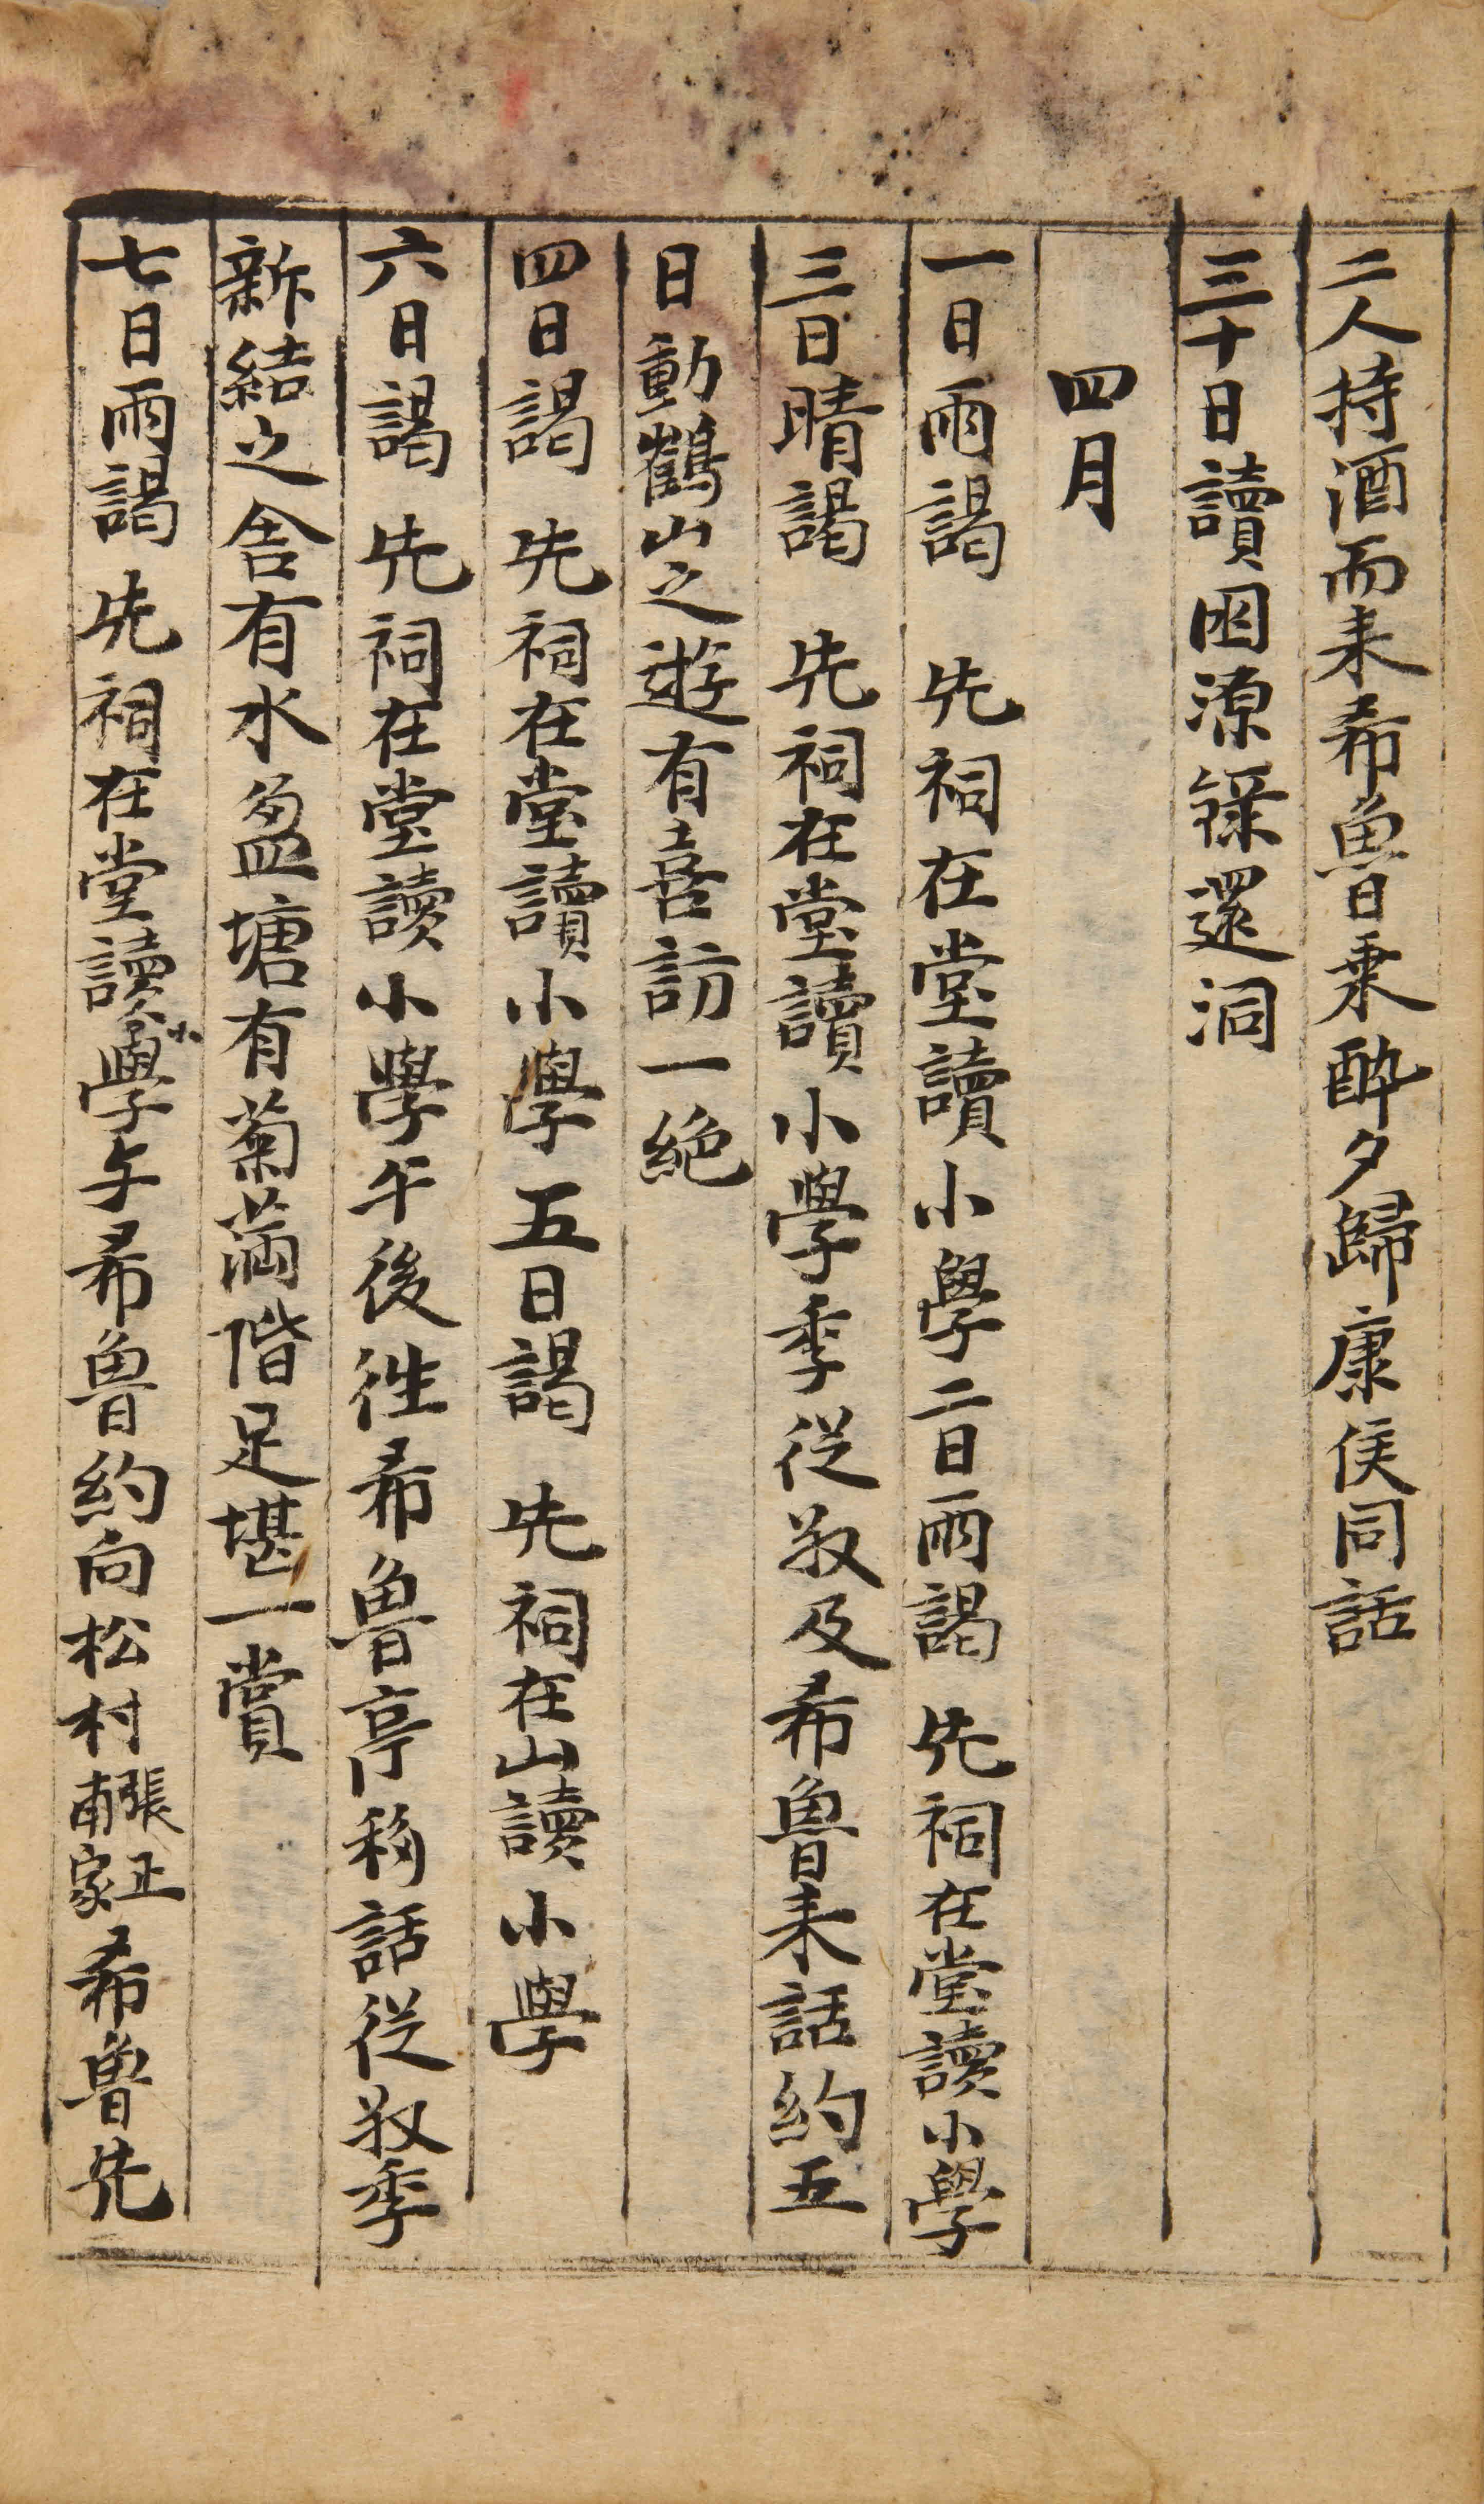 二人持酒而来希魯日乘醉夕歸康侯同話
三十日讀困源錄還洞
四月
一日雨謁 先祠在堂讀小學二日雨謁 先祠在堂讀小學
三日晴謁 先祠在堂讀小學季從叔及希魯来話約五
日動鶴山之遊有喜訪一絶
四日謁 先祠在堂讀小學五日謁 先祠在山讀小學
六日謁 先祠在堂讀小學午後徃希魯亭移話從叔季
新結之舍有水盈塘有菊滿階足堪一賞
七日雨謁 先祠在堂讀小學午希魯約向松村張正甫家希魯先